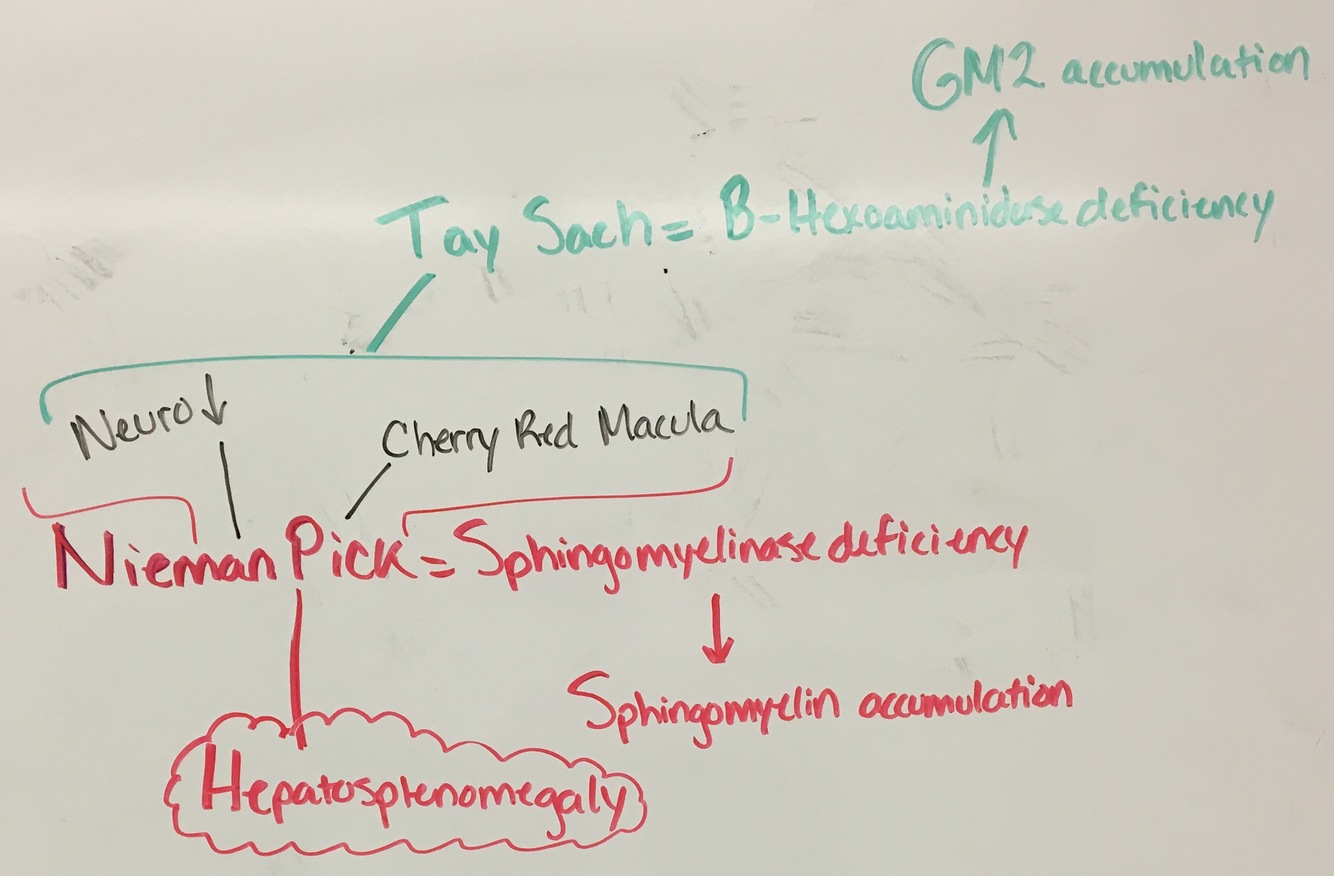 GM2 accumulation
↑
Tay Sach = B-Hexoaminidase deficiency
Neuro ↓
Cherry Red Macula
Nieman Pick = Sphingomyelinase deficiency
↓
Sphingomyelin accumulation
Hepatosplenomegaly